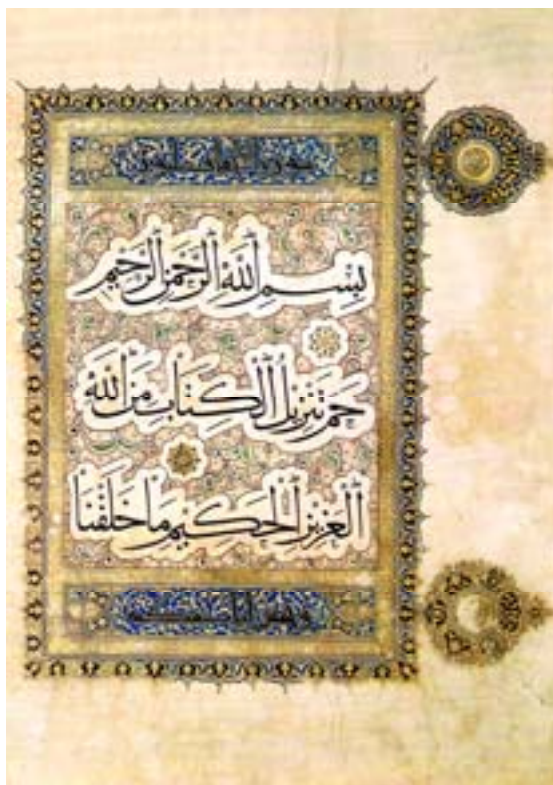 بِسْمِ اللهِ الرَّحْمٰنِ الرَّحِيمِ
حم تَنْزِيلُ الْكِتَابِ مِنَ اللهِ
الْعَزِيزِ الْحَكِيمِ مَا خَلَقْنَا